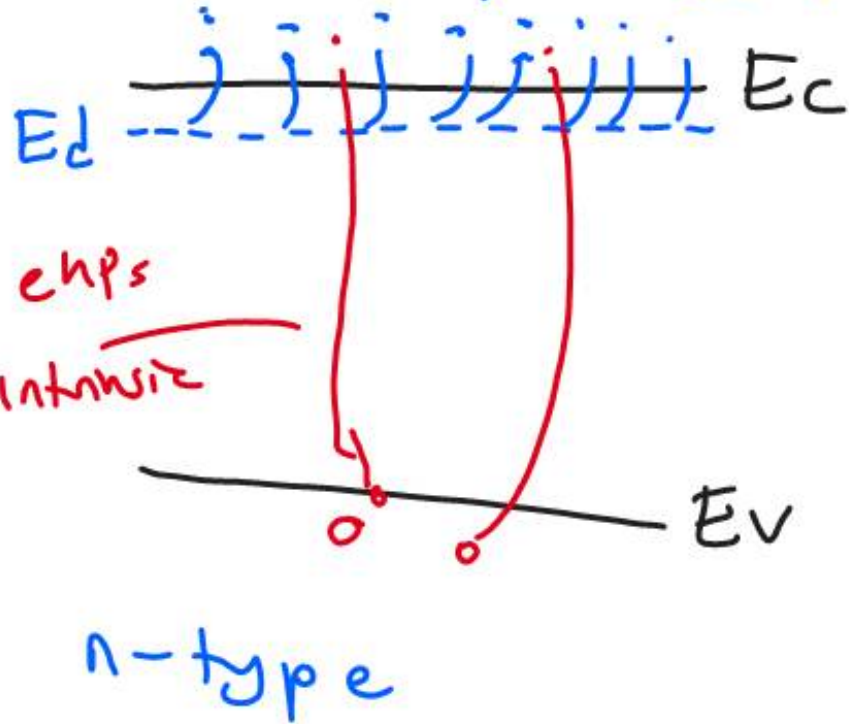 Ec
Ed
ehps
intrinsic
Ev
n-type